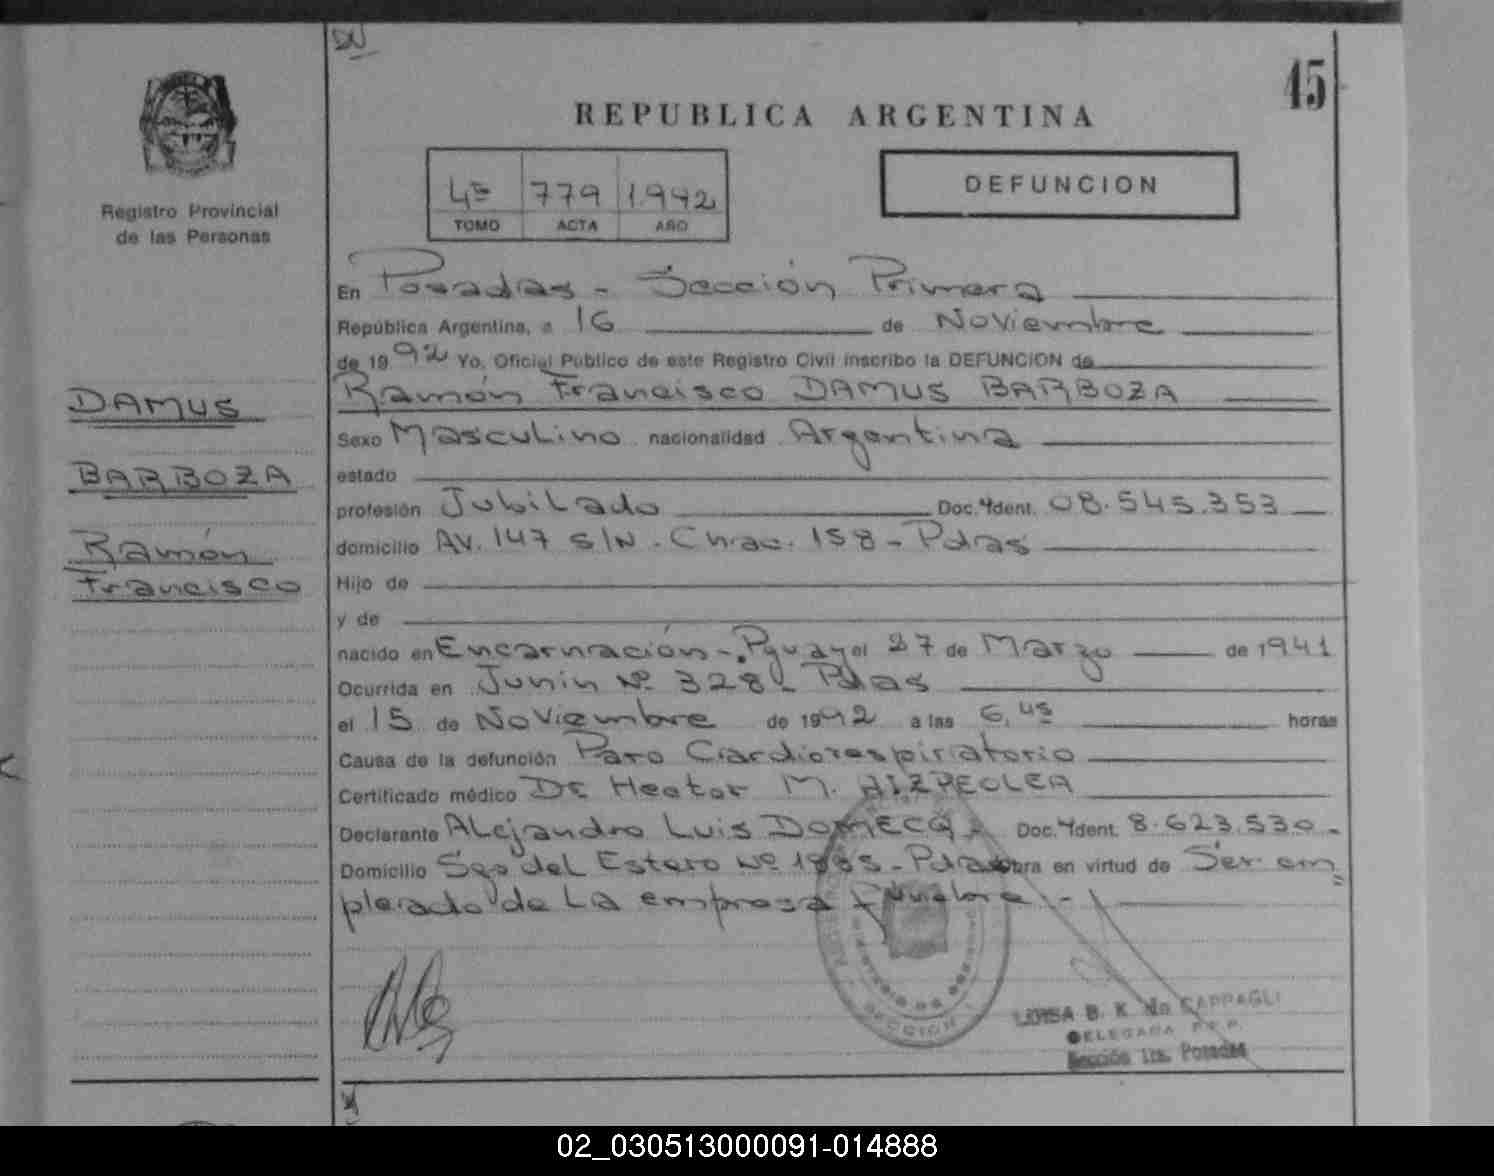 45
REPUBLICA ARGENTINA
4º 779 1.992
TOMO ACTA AÑO
DEFUNCION
Registro Provincial
de las Personas
DAMUS
BARBOZA
Ramón
Francisco
En Posadas - Sección Primera
República Argentina, a 16 de Noviembre
de 1992 Yo, Oficial Público de este Registro Civil inscribo la DEFUNCION de
Ramón Francisco DAMUS BARBOZA
Sexo Masculino nacionalidad Argentina
estado
profesión Jubilado Doc. Ident. 08.545.353
domicilio AV. 147 S/N. Chac. 158 - Pdas
Hijo de
y de
nacido en Encarnación - Pguay el 27 de Marzo de 1941
Ocurrida en Junin Nº 328 - Pdas
el 15 de Noviembre de 1992 a las 6,45 horas
Causa de la defunción Paro Cardiorespiratorio
Certificado médico Dr Hector M. AIZPEOLEA
Declarante Alejandro Luis DOMECQ - Doc. Ident. 8.623.530 -
Domicilio Sgo del Estero Nº - Pdas obra en virtud de Ser em
pleado de La empresa Fúnebre . -
SECCION
LUISA B. K. de CAPPAGLI
DELEGADA
Sección 1ra. Posadas
02_030513000091-014888